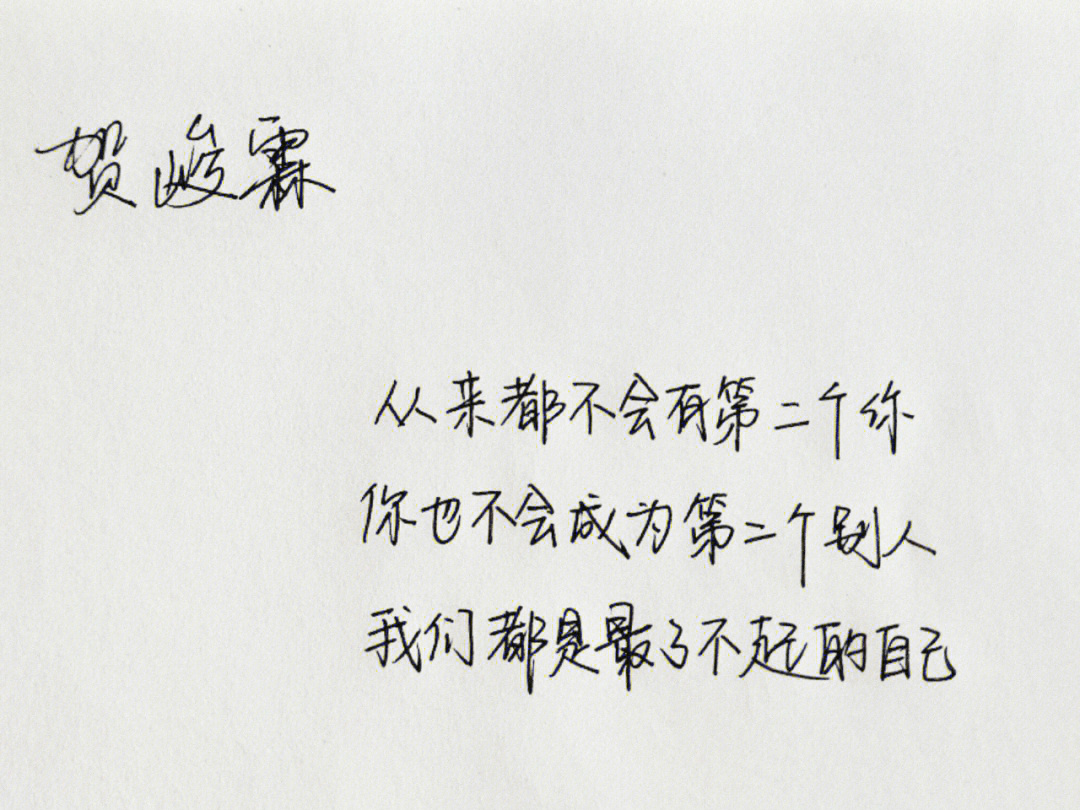 贺峻霖
从来都不会有第二个你
你也不会成为第二个别人
我们都是最了不起的自己